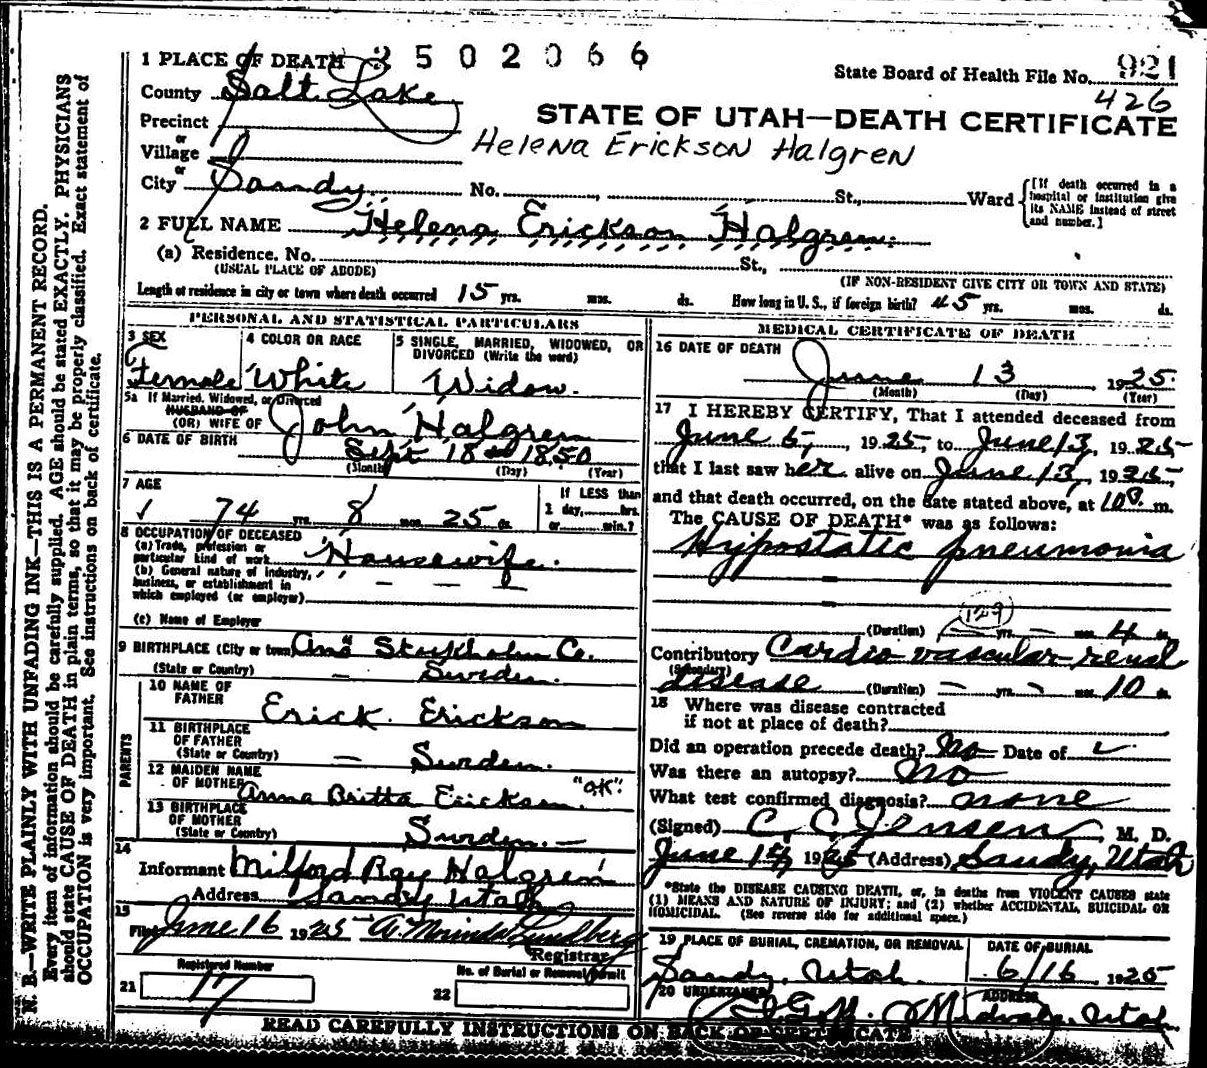 1 PLACE OF DEATH 3502066
State Board of Health File No. 921
426
County Salt Lake
STATE OF UTAH—DEATH CERTIFICATE
Precinct
or
Village
Helena Erickson Halgren
or
City Sandy No. St., Ward
[If death occurred in a hospital or institution give its NAME instead of street and number.]
2 FULL NAME Helena Erickson Halgren
(a) Residence. No. St.,
(USUAL PLACE OF ABODE) (IF NON-RESIDENT GIVE CITY OR TOWN AND STATE)
Length of residence in city or town where death occurred 15 yrs. mos. ds. How long in U. S., if foreign birth? 45 yrs. mos. ds.
PERSONAL AND STATISTICAL PARTICULARS
3 SEX
Female
4 COLOR OR RACE
White
5 SINGLE, MARRIED, WIDOWED, OR
DIVORCED (Write the word)
Widow.
5a If Married, Widowed, or Divorced
HUSBAND OF
(OR) WIFE OF John Halgren
6 DATE OF BIRTH Sept 18 1850
(Month) (Day) (Year)
7 AGE
74 yrs. 8 mos. 25 ds.
If LESS than
1 day, hrs.
or min.?
8 OCCUPATION OF DECEASED
(a) Trade, profession or
particular kind of work Housewife.
(b) General nature of industry,
business, or establishment in
which employed (or employer)
(c) Name of Employer
9 BIRTHPLACE (City or town) Stockholm Co.
(State or Country) Sweden.
PARENTS
10 NAME OF
FATHER Erick Erickson
11 BIRTHPLACE
OF FATHER
(State or Country) — Sweden.
12 MAIDEN NAME
OF MOTHER Anna Britta Erickson. "OK"
13 BIRTHPLACE
OF MOTHER
(State or Country) Sweden.—
14
Informant Milford Ray Halgren
Address Sandy Utah
15
Filed June 16 1925 Lundberg
Registrar
Registered Number
21 17
No. of Burial or Removal Permit
22
MEDICAL CERTIFICATE OF DEATH
16 DATE OF DEATH
June 13, 1925.
(Month) (Day) (Year)
17 I HEREBY CERTIFY, That I attended deceased from
June 5, 1925, to June 13, 1925
that I last saw her alive on June 13, 1925,
and that death occurred, on the date stated above, at 10 P. m.
The CAUSE OF DEATH* was as follows:
Hypostatic pneumonia
129
(Duration) — yrs. — mos. 4 ds.
Contributory Cardio vascular renal
(Secondary)
disease (Duration) — yrs. — mos. 10 ds.
18 Where was disease contracted
if not at place of death?
Did an operation precede death? No Date of
Was there an autopsy? No
What test confirmed diagnosis? none
(Signed) C. C. Jensen, M. D.
June 15, 1925 (Address) Sandy, Utah
*State the DISEASE CAUSING DEATH, or, in deaths from VIOLENT CAUSES state
(1) MEANS AND NATURE OF INJURY; and (2) whether ACCIDENTAL, SUICIDAL OR
HOMICIDAL. (See reverse side for additional space.)
19 PLACE OF BURIAL, CREMATION, OR REMOVAL
Sandy, Utah
DATE OF BURIAL
6/16 1925
20 UNDERTAKER
Goff.
ADDRESS
Midvale, Utah.
READ CAREFULLY INSTRUCTIONS ON BACK OF CERTIFICATE
N. B.—WRITE PLAINLY WITH UNFADING INK—THIS IS A PERMANENT RECORD.
Every item of information should be carefully supplied. AGE should be stated EXACTLY. PHYSICIANS
should state CAUSE OF DEATH in plain terms, so that it may be properly classified. Exact statement of
OCCUPATION is very important. See instructions on back of certificate.